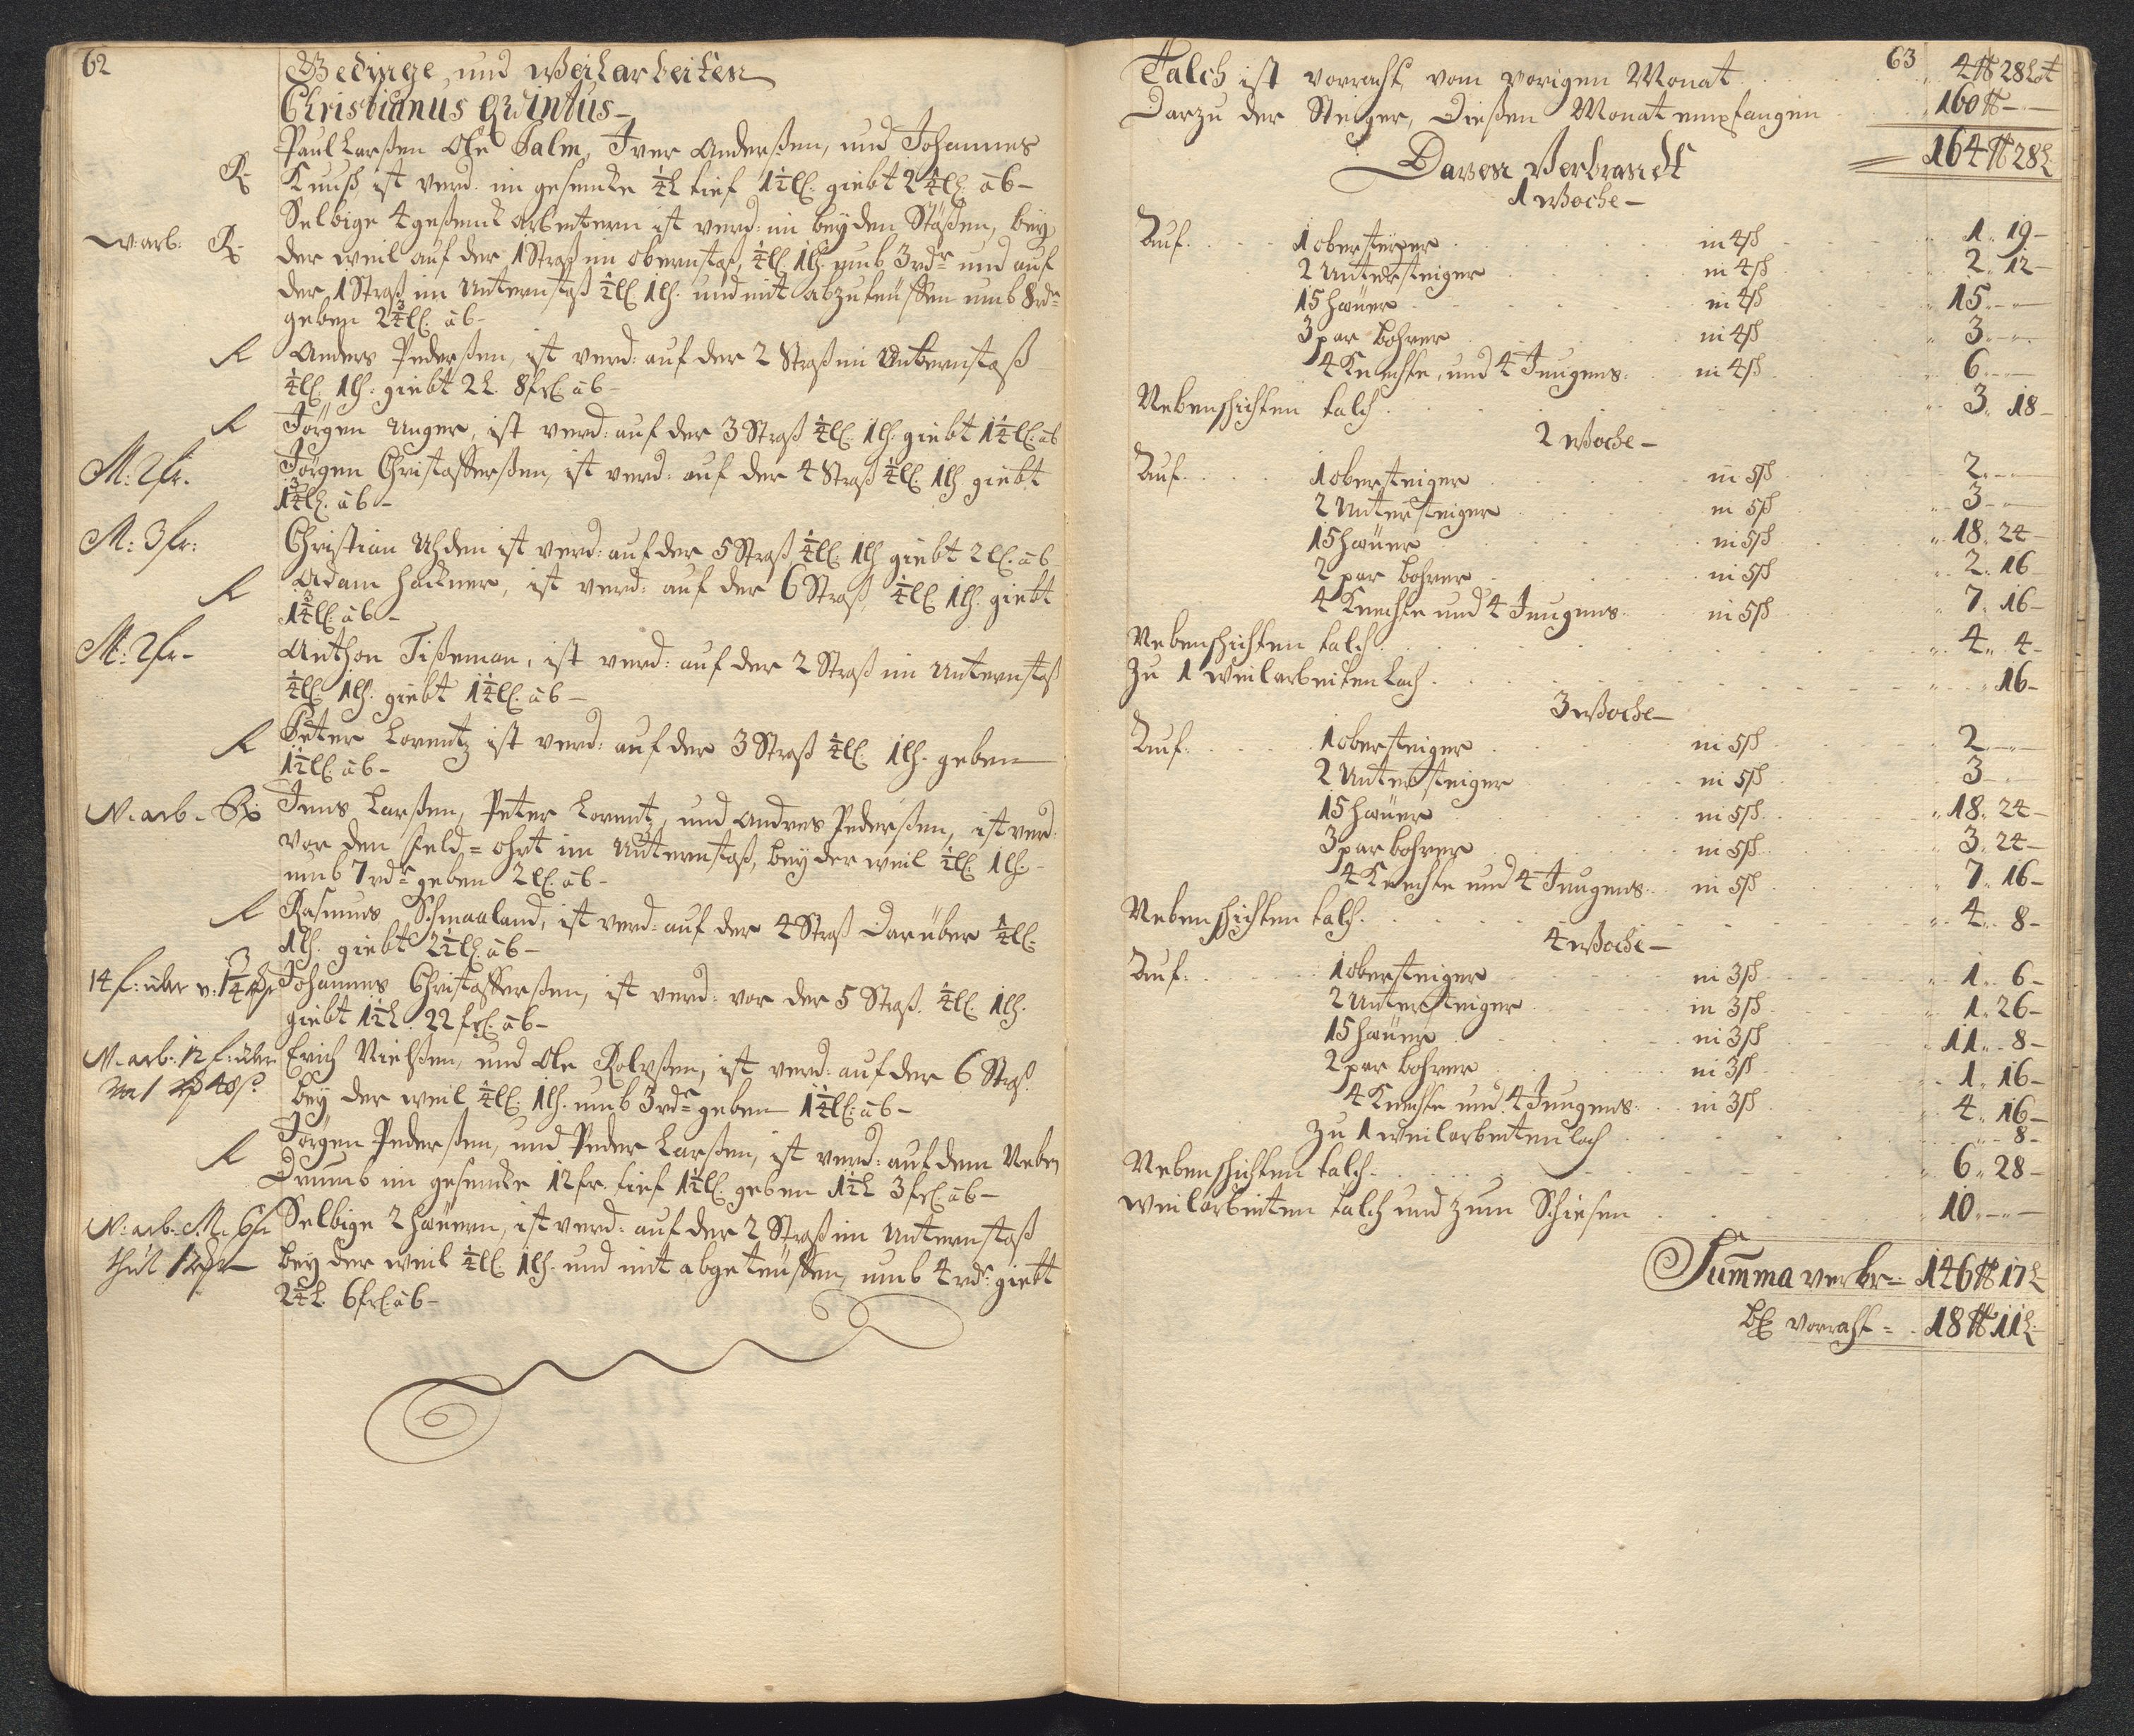 62
Gedinge und Weilarbeiten
Christianus Quintus –
Paul Larßen Ole Palm, Iver Anderßen, und Johannes
R: Knuß ist verd. im gesencke 1/4 L tief 1 1/2 ll: giebt 2 1/4 ll: ab –
Selbige 4 geßenk arbeitern ist verd: im beyden Stößen, bey
w: arb: R: der weil auf der 1 Straß im obernstoß, 1/4 ll: 1 lh. umb 3 rdr und auf
der 1 Straß im Unternstoß 1/2 ll: 1 lh. und mit abzuteüffen umb 8 rdr
geben 2 3/4 ll: ab –
R Anders Pederßen, ist verd: auf der 2 Straß im Unternstoß
1/4 ll: 1 lh: giebt 2 L. 8 frl: ab –
R Jörgen Unger, ist verd: auf der 3 Straß 1/4 ll: 1 lh: giebt 1 1/4 ll: ab
M: 2 fr. Jörgen Christofferßen, ist verd: auf der 4 Straß 1/4 ll: 1 lh giebt
1 3/4 ll: ab –
M: 3 fr: Christian Uhden ist verd: auf der 5 Straß 1/4 ll: 1 lh giebt 2 ll: ab
R Adam Hackner, ist verd: auf der 6 Straß, 1/4 ll: 1 lh. giebt
1 3/4 ll: ab –
M: 2 fr – Anthon Tißeman, ist verd: auf der 2 Straß im Unternstoß
1/4 ll: 1 lh: giebt 1 1/4 ll: ab –
R Peter Lorentz ist verd: auf der 3 Straß 1/4 ll: 1 lh. geben
1 1/2 ll: ab –
W: arb – R: Jens Larßen, Peter Lorentz, und Andres Pederßen, ist verd:
vor den feld = ohrt im Unternstoß, bey der weil 1/2 ll: 1 lh: –
umb 7 rdr geben 2 ll: ab –
R Rasmus Schmaaland, ist verd: auf der 4 Straß Darüber 1/4 ll:
1 lh. giebt 2 1/2 ll: ab –
14 f: über Johannes Christofferßen, ist verd: vor der 5 Straß. 1/4 ll: 1 lh.
giebt 1 1/2 L. 22 frl: ab –
W: arb: 12 f: über Erich Nielßen, und Ole Rolvßen, ist verd: auf der 6 Straß.
bey der weil 1/4 ll: 1 lh. umb 3 rdr geben 1 1/4 ll: ab –
Jörgen Pederßen, und Peder Larßen, ist verd: auf dem Neben
R Trumb im gesencke 12 fr. tief 1 1/2 ll: geben 1 1/2 L 3 frl: ab –
W: arb: M: 6 fr Selbige 2 haüern, ist verd: auf der 2 Straß im Unternstoß
thut bey der weil 1/4 ll: 1 lh. und mit abgeteüffen, umb 4 rdr: giebt
2 1/4 L. 6 frl: ab –
63
Talch ist vorraht vom vorigen Monat . . . 4 ℔ 28 Lot
Darzu der Steiger, Dießen Monat empfangen 160 ℔ –
164 ℔ 28 L
Davon Verbrandt
1 Woche –
Auf . . 1 obersteiger . . in 4 ß . . 1 . 19 –
2 Untersteiger . . in 4 ß . . 2 . 12 –
15 haüer . . in 4 ß . . 15 . –
3 par bohrer . . in 4 ß . . 3 . –
4 Knechte, und 4 Jungens . . in 4 ß . . 6 . –
Nebenschichten talch . . . 3 . 18 –
2 Woche –
Auf . . 1 obersteiger . . in 5 ß . . 2 . –
2 Untersteiger . . in 5 ß . . 3 . –
15 haüer . . in 5 ß . . 18 . 24 –
2 par bohrer . . in 5 ß . . 2 . 16
4 Knechte und 4 Jungens . . in 5 ß . . 7 . 16 –
Nebenschichten talch . . . 4 . 4 –
Zu 1 weilarbeiten loch . . . 16 –
3 Woche –
Auf . . 1 obersteiger . . in 5 ß . . 2 . –
2 Untersteiger . . in 5 ß . . 3 . –
15 haüer . . in 5 ß . . 18 . 24 –
3 par bohrer . . in 5 ß . . 3 . 24 –
4 Knechte und 4 Jungens . . in 5 ß . . 7 . 16 –
Nebenschichten talch . . . 4 . 8 –
4 Woche –
Auf . . 1 obersteiger . . in 3 ß . . 1 . 6 –
2 Untersteiger . . in 3 ß . . 1 . 26 –
15 haüer . . in 3 ß . . 11 . 8 –
2 par bohrer . . in 3 ß . . 1 . 16 –
4 Knechte und 4 Jungens . . in 3 ß . . 4 . 16 –
Zu 1 weilarbeiten loch . . . 8 –
Nebenschichten talch . . . 6 . 28 –
weilarbeiten talch und zum Schiesen . . . 10 . –
Summa verbr = 146 ℔ 17 L
bl: vorraht = 18 ℔ 11 L